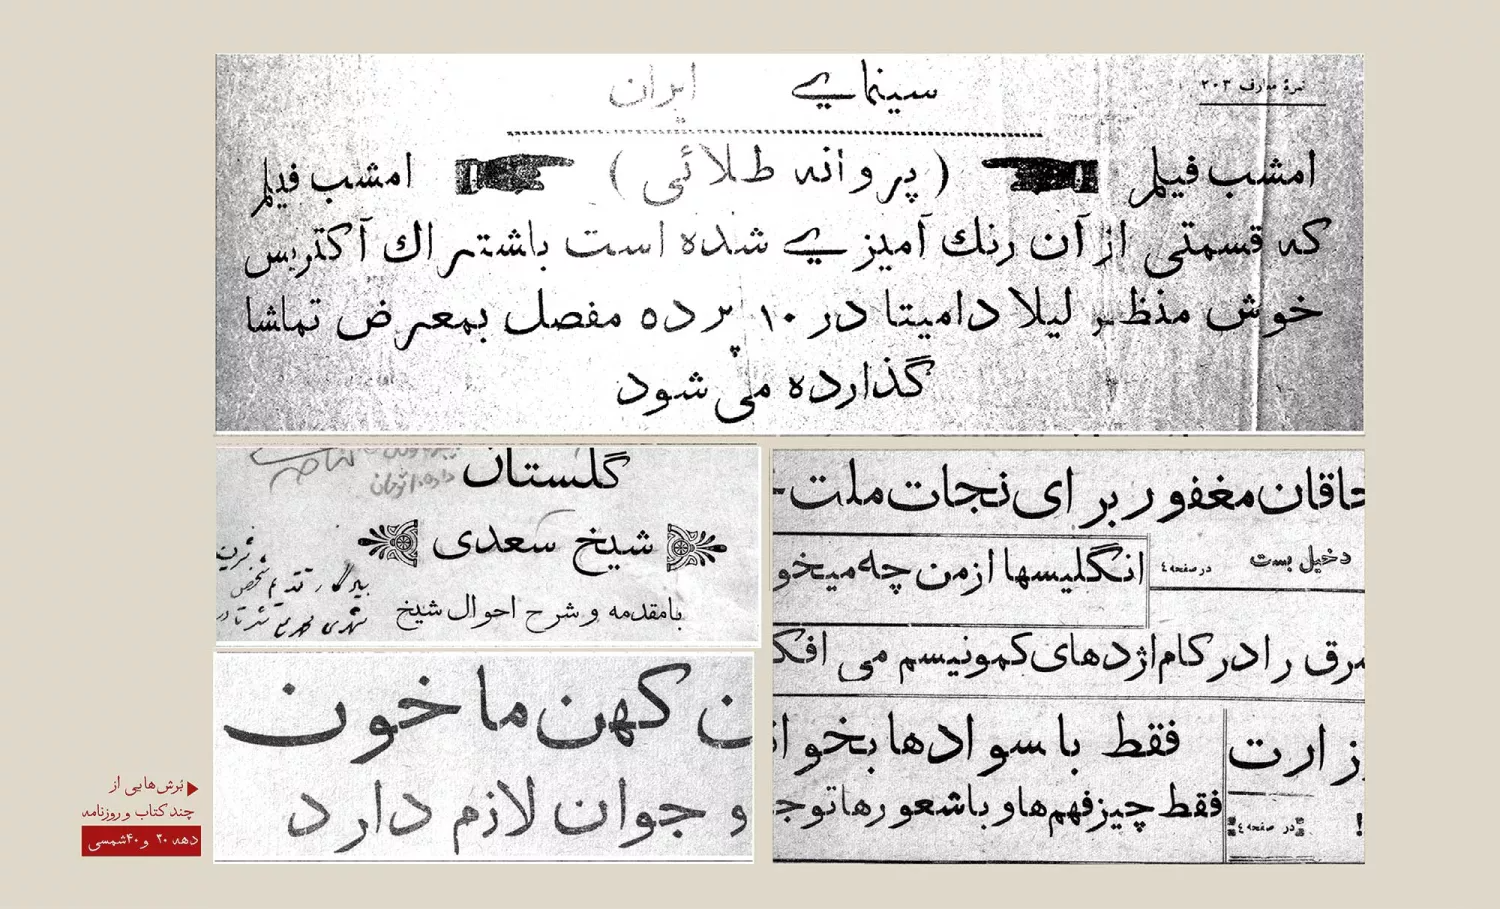 نمرهٔ معارف ۲۰۳
سینمای ایران
امشب فیلم ( پروانه طلائی ) امشب فیلم
که قسمتی از آن رنك آمیزی شده است باشتراك آکتریس
خوش منظر لیلا دامیتا در ۱۰ پرده مفصل بمعرض تماشا
گذارده می شود
گلستان
شیخ سعدی
بامقدمه و شرح احوال شیخ
ن کهن ما خون
و جوان لازم دارد
خاقان مغفور برای نجات ملت
دخیل بست
در صفحه ٤
انگلیسها از من چه میخو
رق را در کام اژدهای کمونیسم می افک
زارت
فقط با سوادها بخوا
فقط چیز فهم‌ها و باشعورها توج
!
در صفحه ٤
بُرش‌هایی از
چند کتاب و روزنامه
دهه ۲۰ و ۴۰شمسی